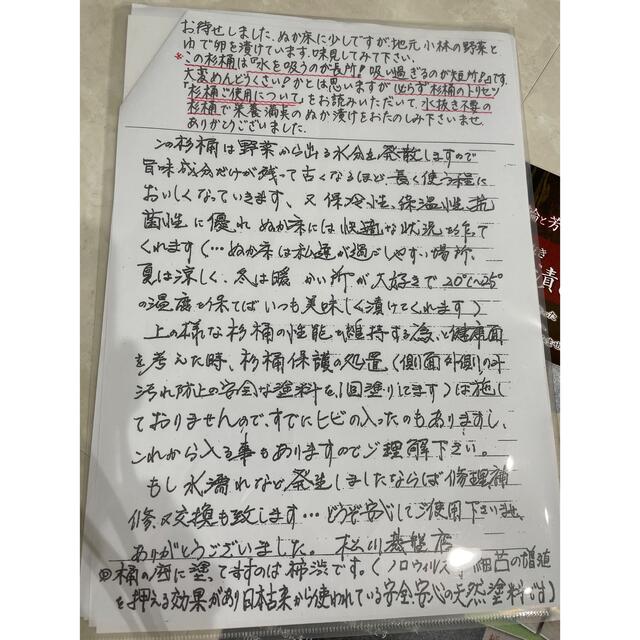 お待せしました、ぬか床に少しですが、地元小林の野菜と
ゆで卵を漬けています。味見してみて下さい。
*この杉桶は『水を吸うのが長所!吸い過ぎるのが短所?』です。
大変めんどうくさい?かとは思いますが、必らず『杉桶のトリセツ
『杉桶ご使用について』をお読みいただいて、水抜き不要の
杉桶で栄養満点のぬか漬けをおたのしみ下さいませ。
ありがとうございました。
この杉桶は野菜から出る水分を発散しますので
旨味成分だけが残って古くなるほど、長く使う程に
おいしくなっていきます、又保冷性、保温性、抗
菌性に優れぬか床には快適な状況を作って
くれます(…ぬか床は私達が過ごしやすい場所、
夏は涼しく、冬は暖かい所が大好きで20℃~25°
の温度を保てばいつも美味しく漬けてくれます)
上の様な杉桶の性能を維持する為、と健康面
を考えた時、杉桶保護の処置(側面外側のみ
汚れ防止の安全な塗料を1回塗りしてます)は施し
ておりませんので、すでにヒビの入ったのもありますし、
これから入る事もありますのでご理解下さい。
もし水濡れなど発生しましたならば修理、補
修、又交換も致します…どうぞ安心してご使用下さいませ、
ありがとうございました。 松川碁盤店
◎桶の外に塗ってますのは柿渋です。(ノロウィルスや細菌の増殖
を押える効果があり日本古来から使われている安全、安心の天然塗料です)